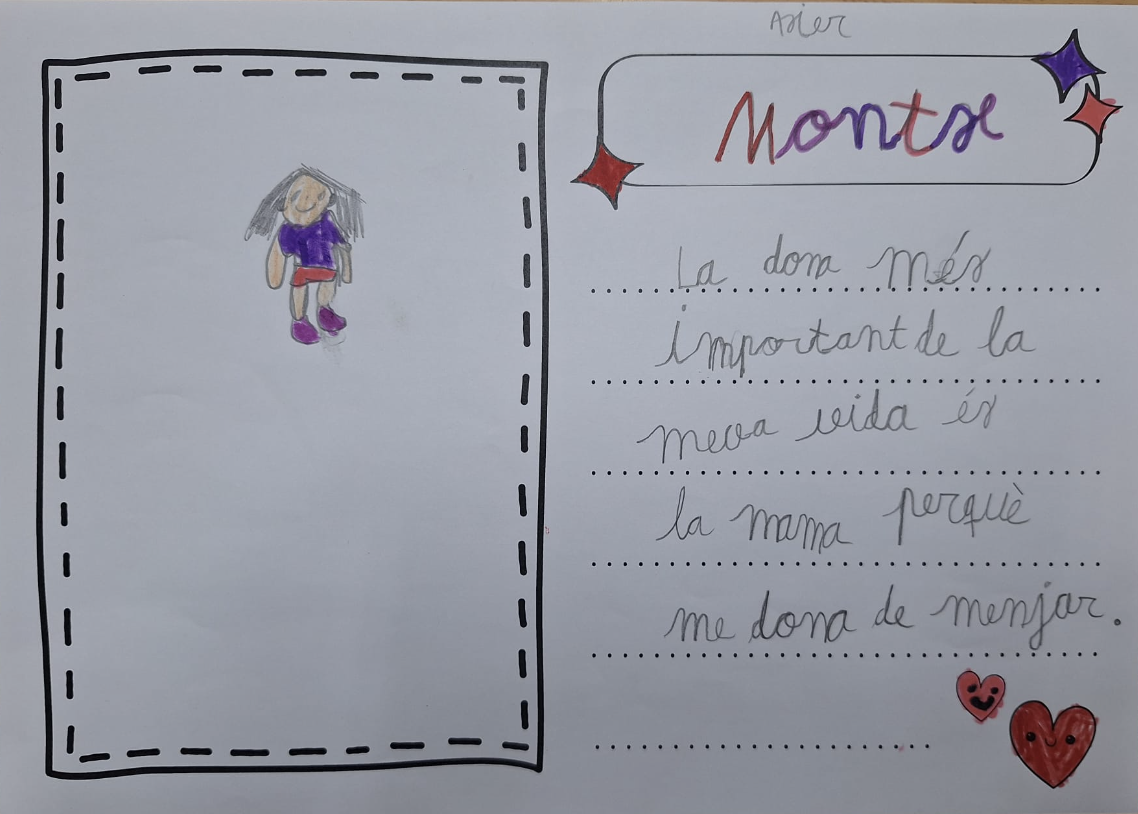 Asier
Montse
La dona més
important de la
meva vida és
la mama perquè
me dona de menjar.